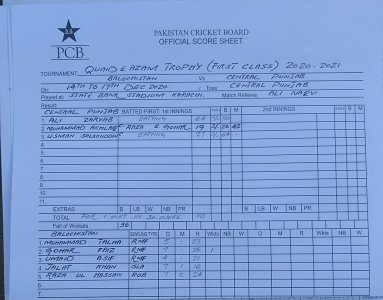 PCB
PAKISTAN CRICKET BOARD
OFFICIAL SCORE SHEET
TOURNAMENT QUAID E AZAM TROPHY (FIRST CLASS) 2020-2021
BALOCHISTAN Vs CENTRAL PUNJAB
On: 14TH TO 17TH DEC 2020 Toss: CENTRAL PUNJAB
Played at: STATE BANK STADIUM KARACHI. Match Referee: ALI NAQVI
Result
CENTRAL PUNJAB BATTED FIRST: 1st INNINGS B M 2nd INNINGS B M
1 ALI ZARYAB BATTING
2 MUHAMMAD RAZA B GOHAR 19
3 USMAN SALAHUDDIN BATTING
4
5
6
7
8
9
10
11
EXTRAS B LB W NB PR B LB W NB PR
TOTAL FOR 1 WKT IN 30 OVERS 110
Fall of Wickets 36
BALOCHISTAN BOWLING TYPE O M R Wkts NB W O M R Wkts NB W
1 MUHAMMAD TALHA RMF 5 - 13
2 GOHAR FAIZ RMF 7 28 1
3 UMAID ASIF RMF 21
4 JALAT KHAN SLA 7 1 16
5 RAZA UL HASSAN ROB 7 24